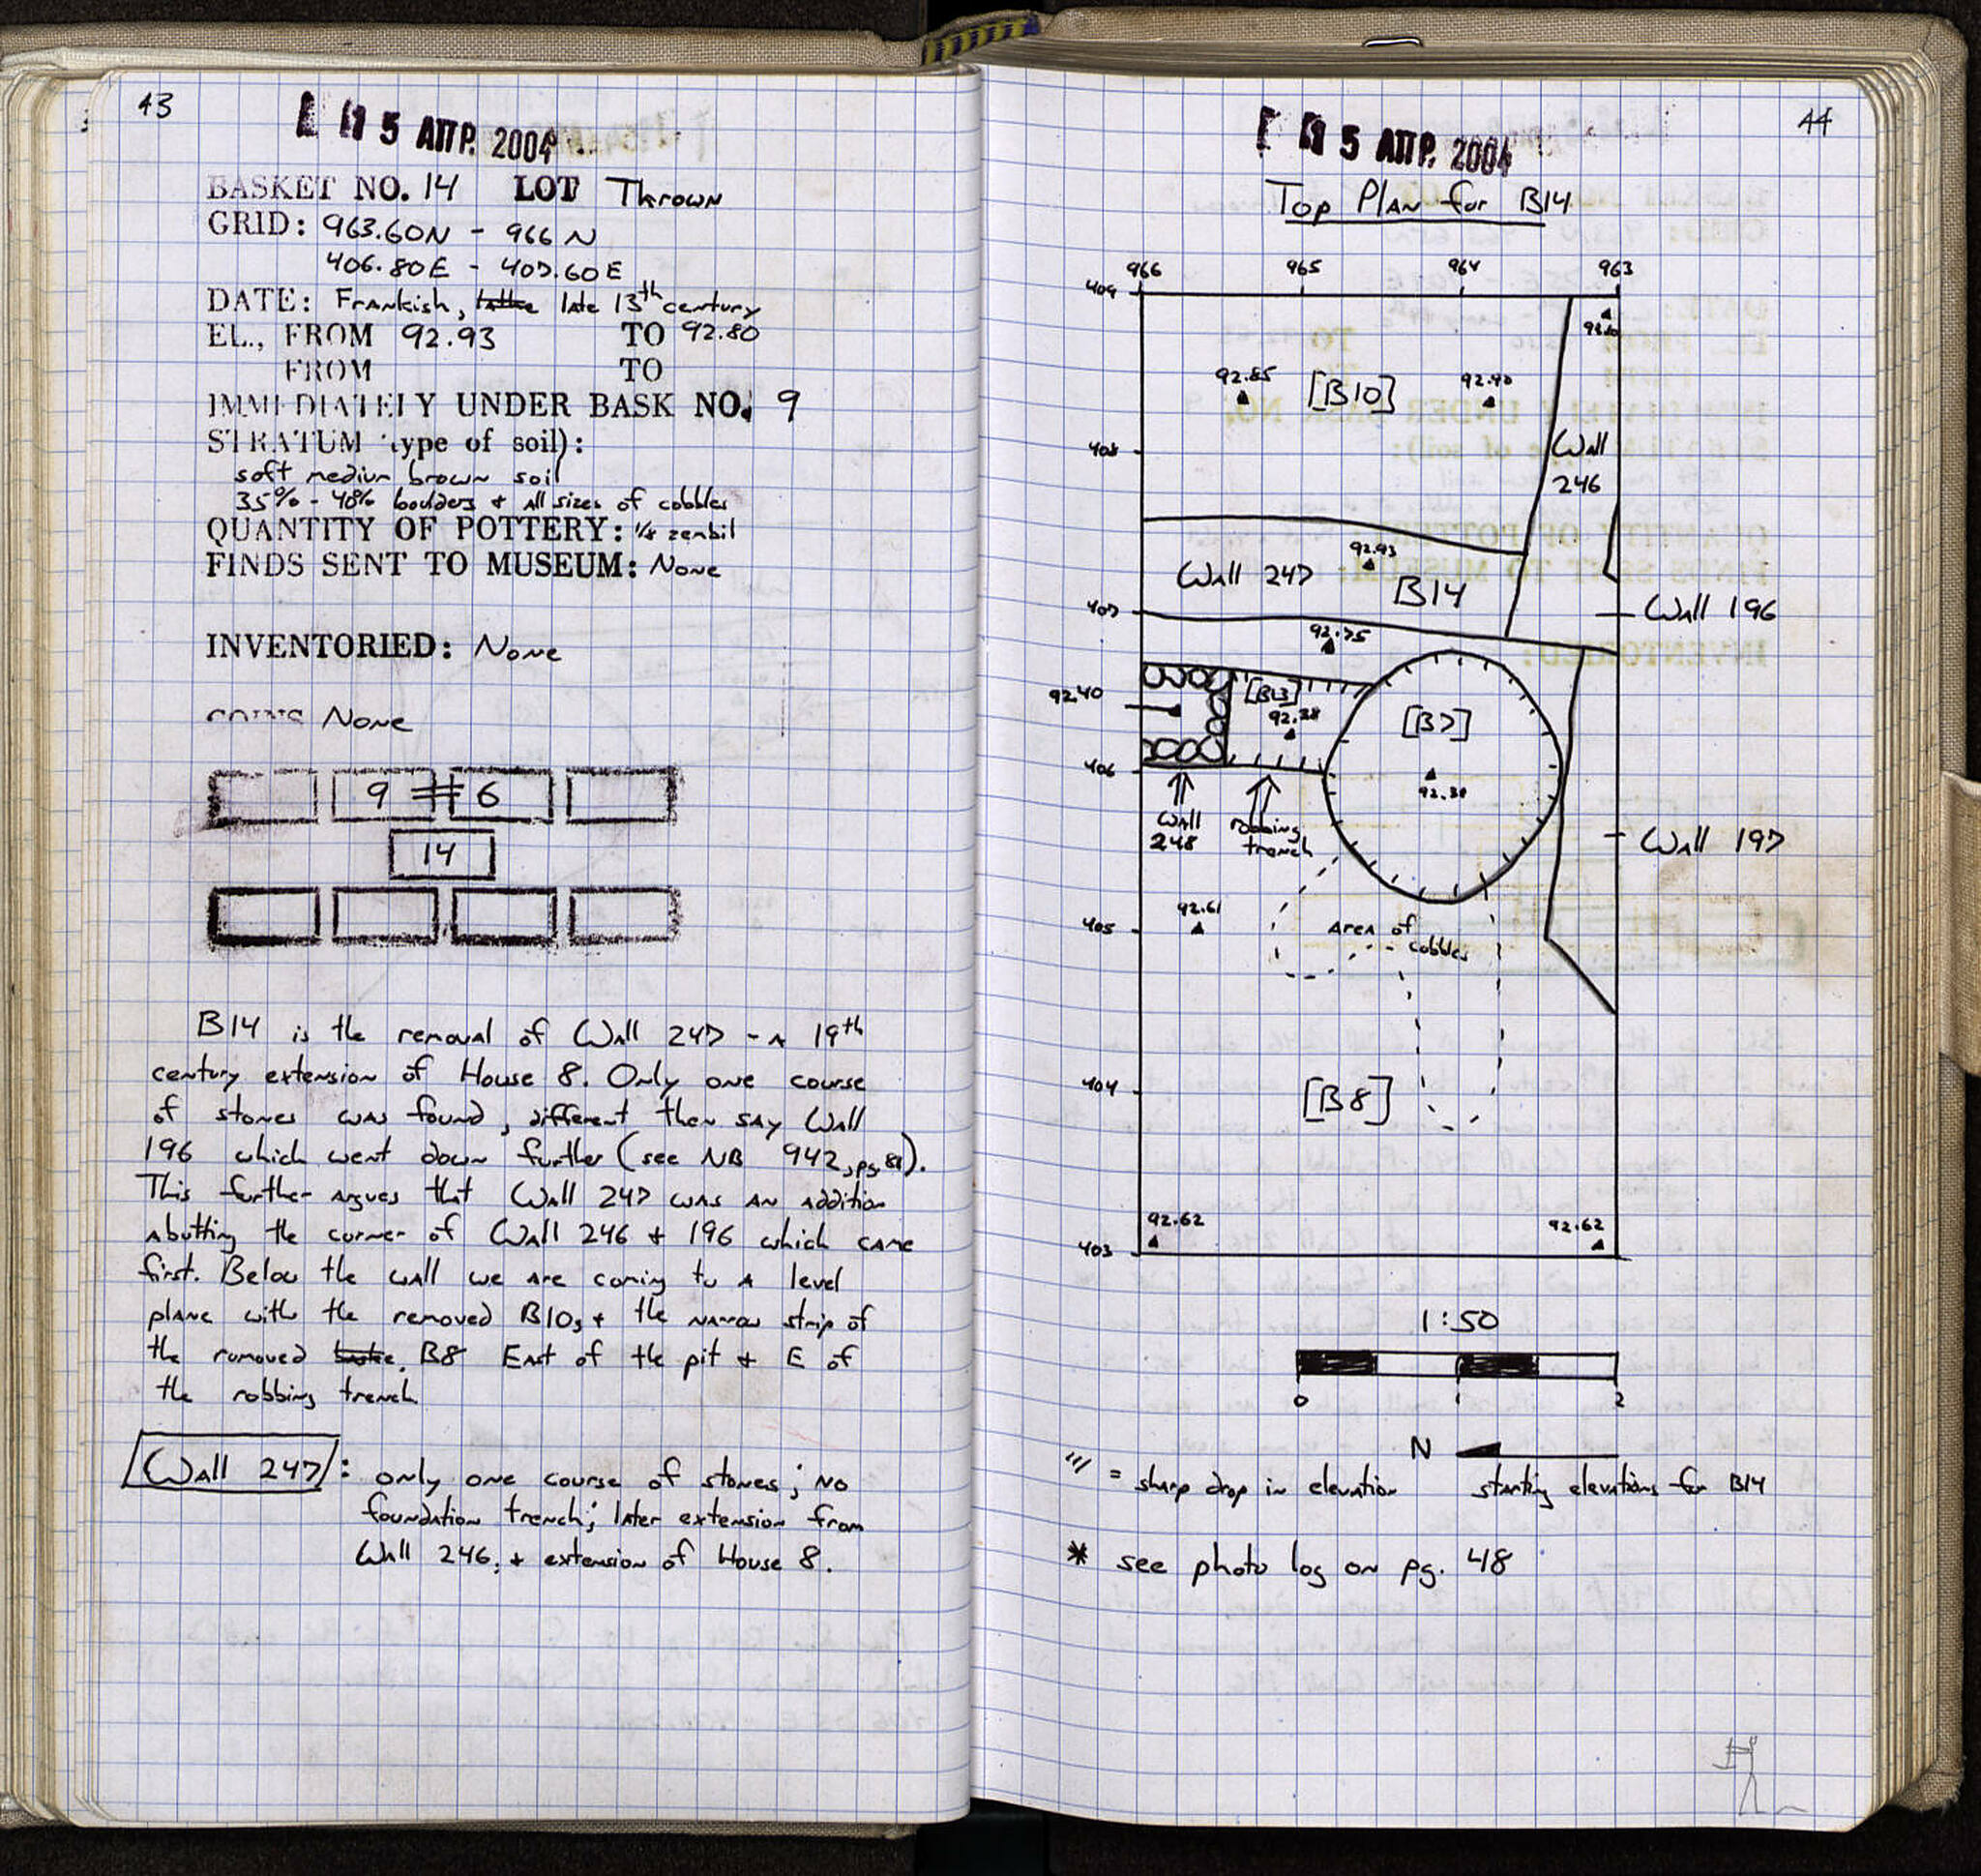 43
5 ΑΠΡ. 2004
BASKET NO. 14 LOT Thrown
GRID: 963.60N - 966 N
406.80E - 407.60E
DATE: Frankish, late 13th century
EL., FROM 92.93 TO 92.80
FROM TO
IMMEDIATELY UNDER BASK NO. 9
STRATUM type of soil):
soft medium brown soil
35% - 40% boulders + all sizes of cobbles
QUANTITY OF POTTERY: zembil
FINDS SENT TO MUSEUM: None
INVENTORIED: None
COINS None
9 6
14
B14 is the removal of Wall 247 - a 19th
century extension of House 8. Only one course
of stones was found, different then say Wall
196 which went down further (see NB 942, pg. 81).
This further argues that Wall 247 was an addition
abutting the corner of Wall 246 + 196 which came
first. Below the wall we are coming to a level
plane with the removed B10, + the narrow strip of
the rumoved B8 East of the pit + E of
the robbing trench.
Wall 247: only one course of stones; no
foundation trench; later extension from
Wall 246, + extension of House 8.
44
5 ΑΠΡ. 2004
Top Plan for B14
966 965 964 963
409
92.85 [B10] 92.90
408
Wall
246
92.93
Wall 247 B14
407
Wall 196
92.75
92.40
[B13]
92.38
[B7]
406
92.38
Wall
248
robbing
trench
Wall 197
92.61
405
Area of
cobbles
404
[B8]
92.62 92.62
403
1:50
0 1 2
N
''' = sharp drop in elevation starting elevations for B14
* see photo log on pg. 48